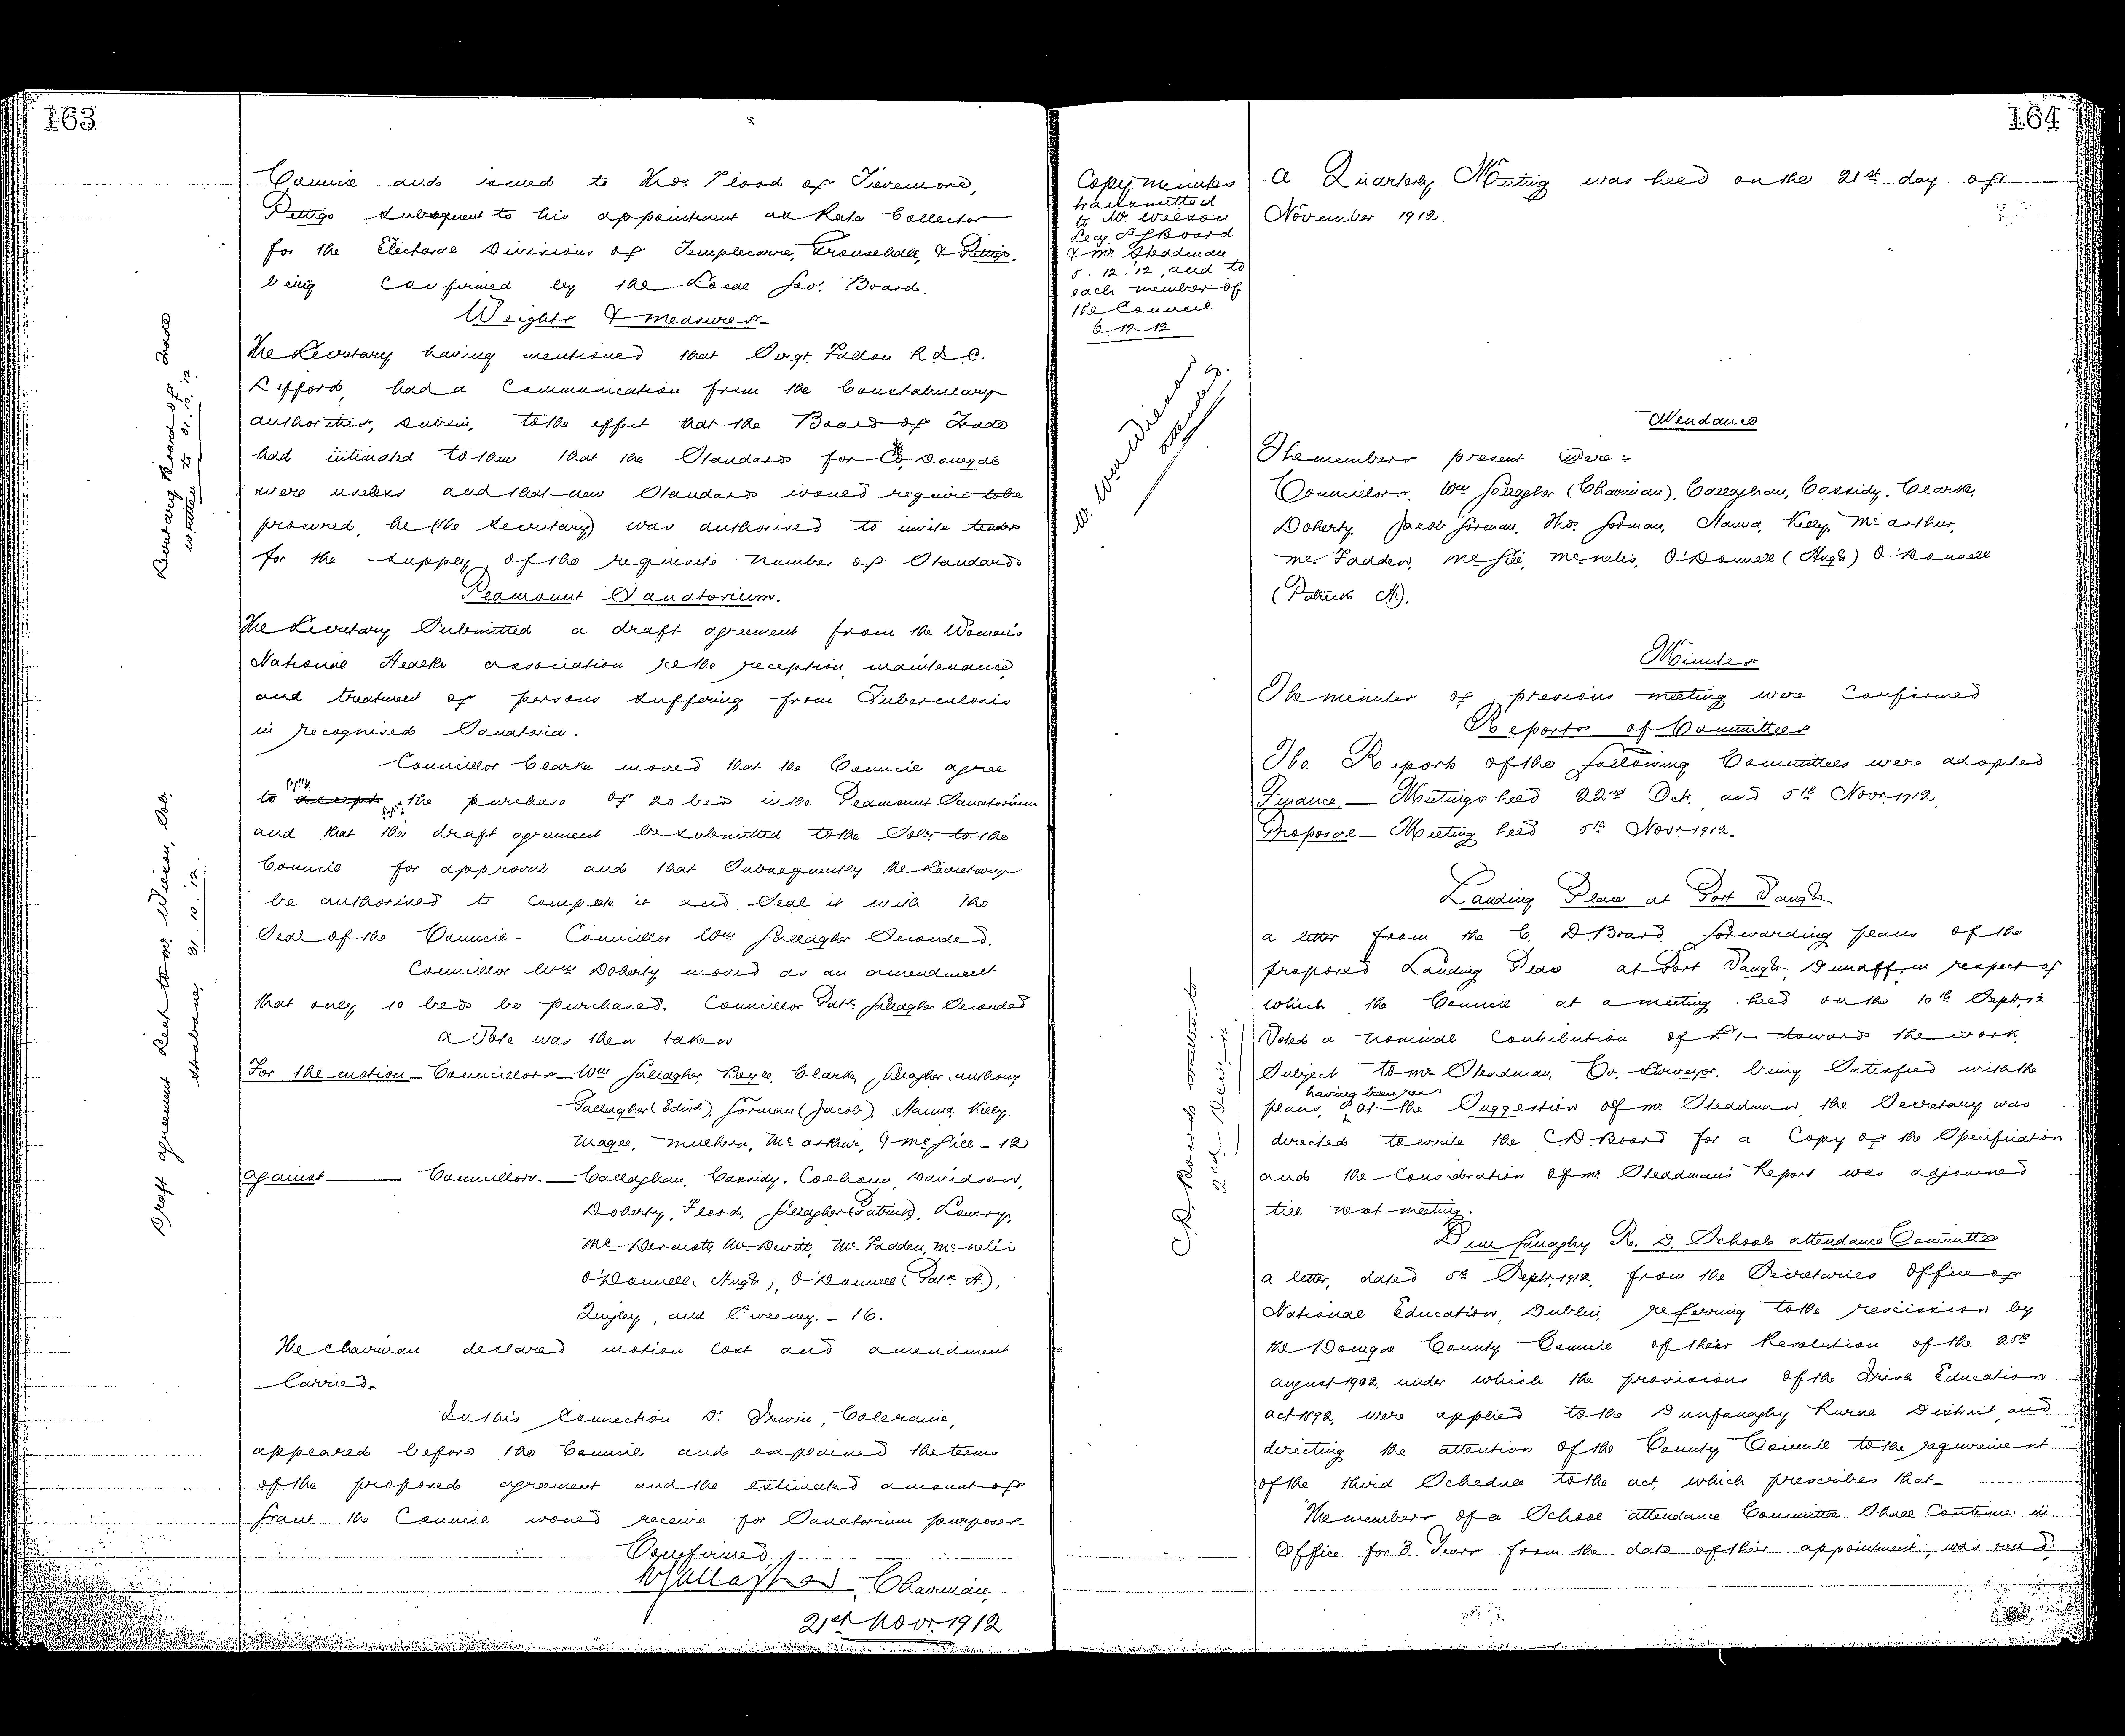 163
Council and issued to Thos. Flood of Tievemore,
Pettigo subsequent to his appointment as Rate Collector
for the Electoral Divisions of Templecarne, Grousehall, & Pettigo,
being confirmed by the Local Govt. Board.
Weights & Measures
The Secretary having mentioned that Sergt. Fallon R I C.
Lifford, had a communication from the Constabulary
authorities, Dublin, to the effect that the Board of Trade
had intimated to them that the Standards for Co. Donegal
were useless and that new Standards would require to be
procured, he (the Secretary) was authorised to invite tenders
for the supply of the requisite number of Standards
Secretary Board of Trade
written to 31.10.12.
Peamount Sanatorium.
The Secretary Submitted a draft agreement from the Women's
National Health association re the reception, maintenance,
and treatment of persons suffering from Tuberculosis
in recognised Sanatoria.
Councillor Clarke moved that the Council agree
to accept the purchase of 20 beds in the Peamount Sanatorium
and that the draft agreement be submitted to the Solr. to the
Council for approval and that Subsequently the Secretary
be authorised to complete it and Seal it with the
Seal of the Council - Councillor Wm Gallagher Seconded.
Draft agreement sent to Mr Wilson, Solr.
Strabane, 31.10.12.
Councillor Wm Doherty moved as an amendment
that only 10 beds be purchased. Councillor Patk. Gallagher Seconded
a Vote was then taken
For the motion - Councillors - Wm Gallagher, Boyle, Clarke, Gallagher Anthony
Gallagher (Edwd), Gorman (Jacob), Hanna, Kelly.
Magee, Mulhern, McArthur, & McGill - 12
Against - Councillors. - Callaghan, Cassidy, Colhoun, Davidson,
Doherty, Flood, Gallagher (Patrick), Lowery,
McDermott, McDevitt, McFadden, McNelis
O'Donnell, Hugh), O'Donnell (Patk. A.),
Quigley, and Sweeney. - 16.
The Chairman declared motion lost and amendment
Carried.
In this connection Dr. Irwin, Coleraine,
appeared before the Council and explained the terms
of the proposed agreement and the estimated amount of
Grant the Council would receive for Sanatorium purposes.
Confirmed,
W Gallagher Chairman,
21st Novr. 1912
164
Copy minutes
transmitted
to Mr. Wilson
Secy Board
& Mr. Steadman
5.12.'12, and to
each member of
the Council
6.12.12
A Quarterly Meeting was held on the 21st day of
November 1912.
Attendance
The members present were:-
Councillors. Wm Gallagher (Chairman), Callaghan, Cassidy, Clarke,
Doherty, Jacob Gorman, Thos. Gorman, Hanna, Kelly, McArthur,
McFadden, McGill, McNelis, O'Donnell (Hugh) O'Donnell
(Patrick A.).
Minutes
The minutes of previous meeting were confirmed
Reports of Committees
The Reports of the following Committees were adopted
Finance. - Meetings held 22nd Oct. and 5th Novr. 1912.
Proposal - Meeting held 5th Novr. 1912.
Landing Place at Port
a letter from the C. D. Board, forwarding plans of the
proposed Landing Place at Port Dunaff, in respect of
which the Council at a meeting held on the 10th Sept. 12
Voted a nominal Contribution of £1- toward the work,
Subject to Mr. Steadman, Co. Surveyor, being Satisfied with the
plans, having been read at the Suggestion of Mr Steadman, the Secretary was
directed to write the C.D. Board for a Copy of the Specification
and the Consideration of Mr. Steadman's Report was adjourned
till next meeting.
C.D. Board written to
2nd Decr 12
Dunfanaghy R. D. School attendance Committee
a letter, dated 5th Sept. 1912, from the Secretaries Office of
National Education, Dublin, referring to the rescission by
the Donegal County Council of their Resolution of the 25th
August 1902, under which the provisions of the Irish Education
act 1892, were applied to the Dunfanaghy Rural District, and
directing the attention of the County Council to the requirement
of the third Schedule to the act, which prescribes that -
"The members of a School attendance Committee Shall Continue in
Office for 3 Years from the date of their appointment", was read.